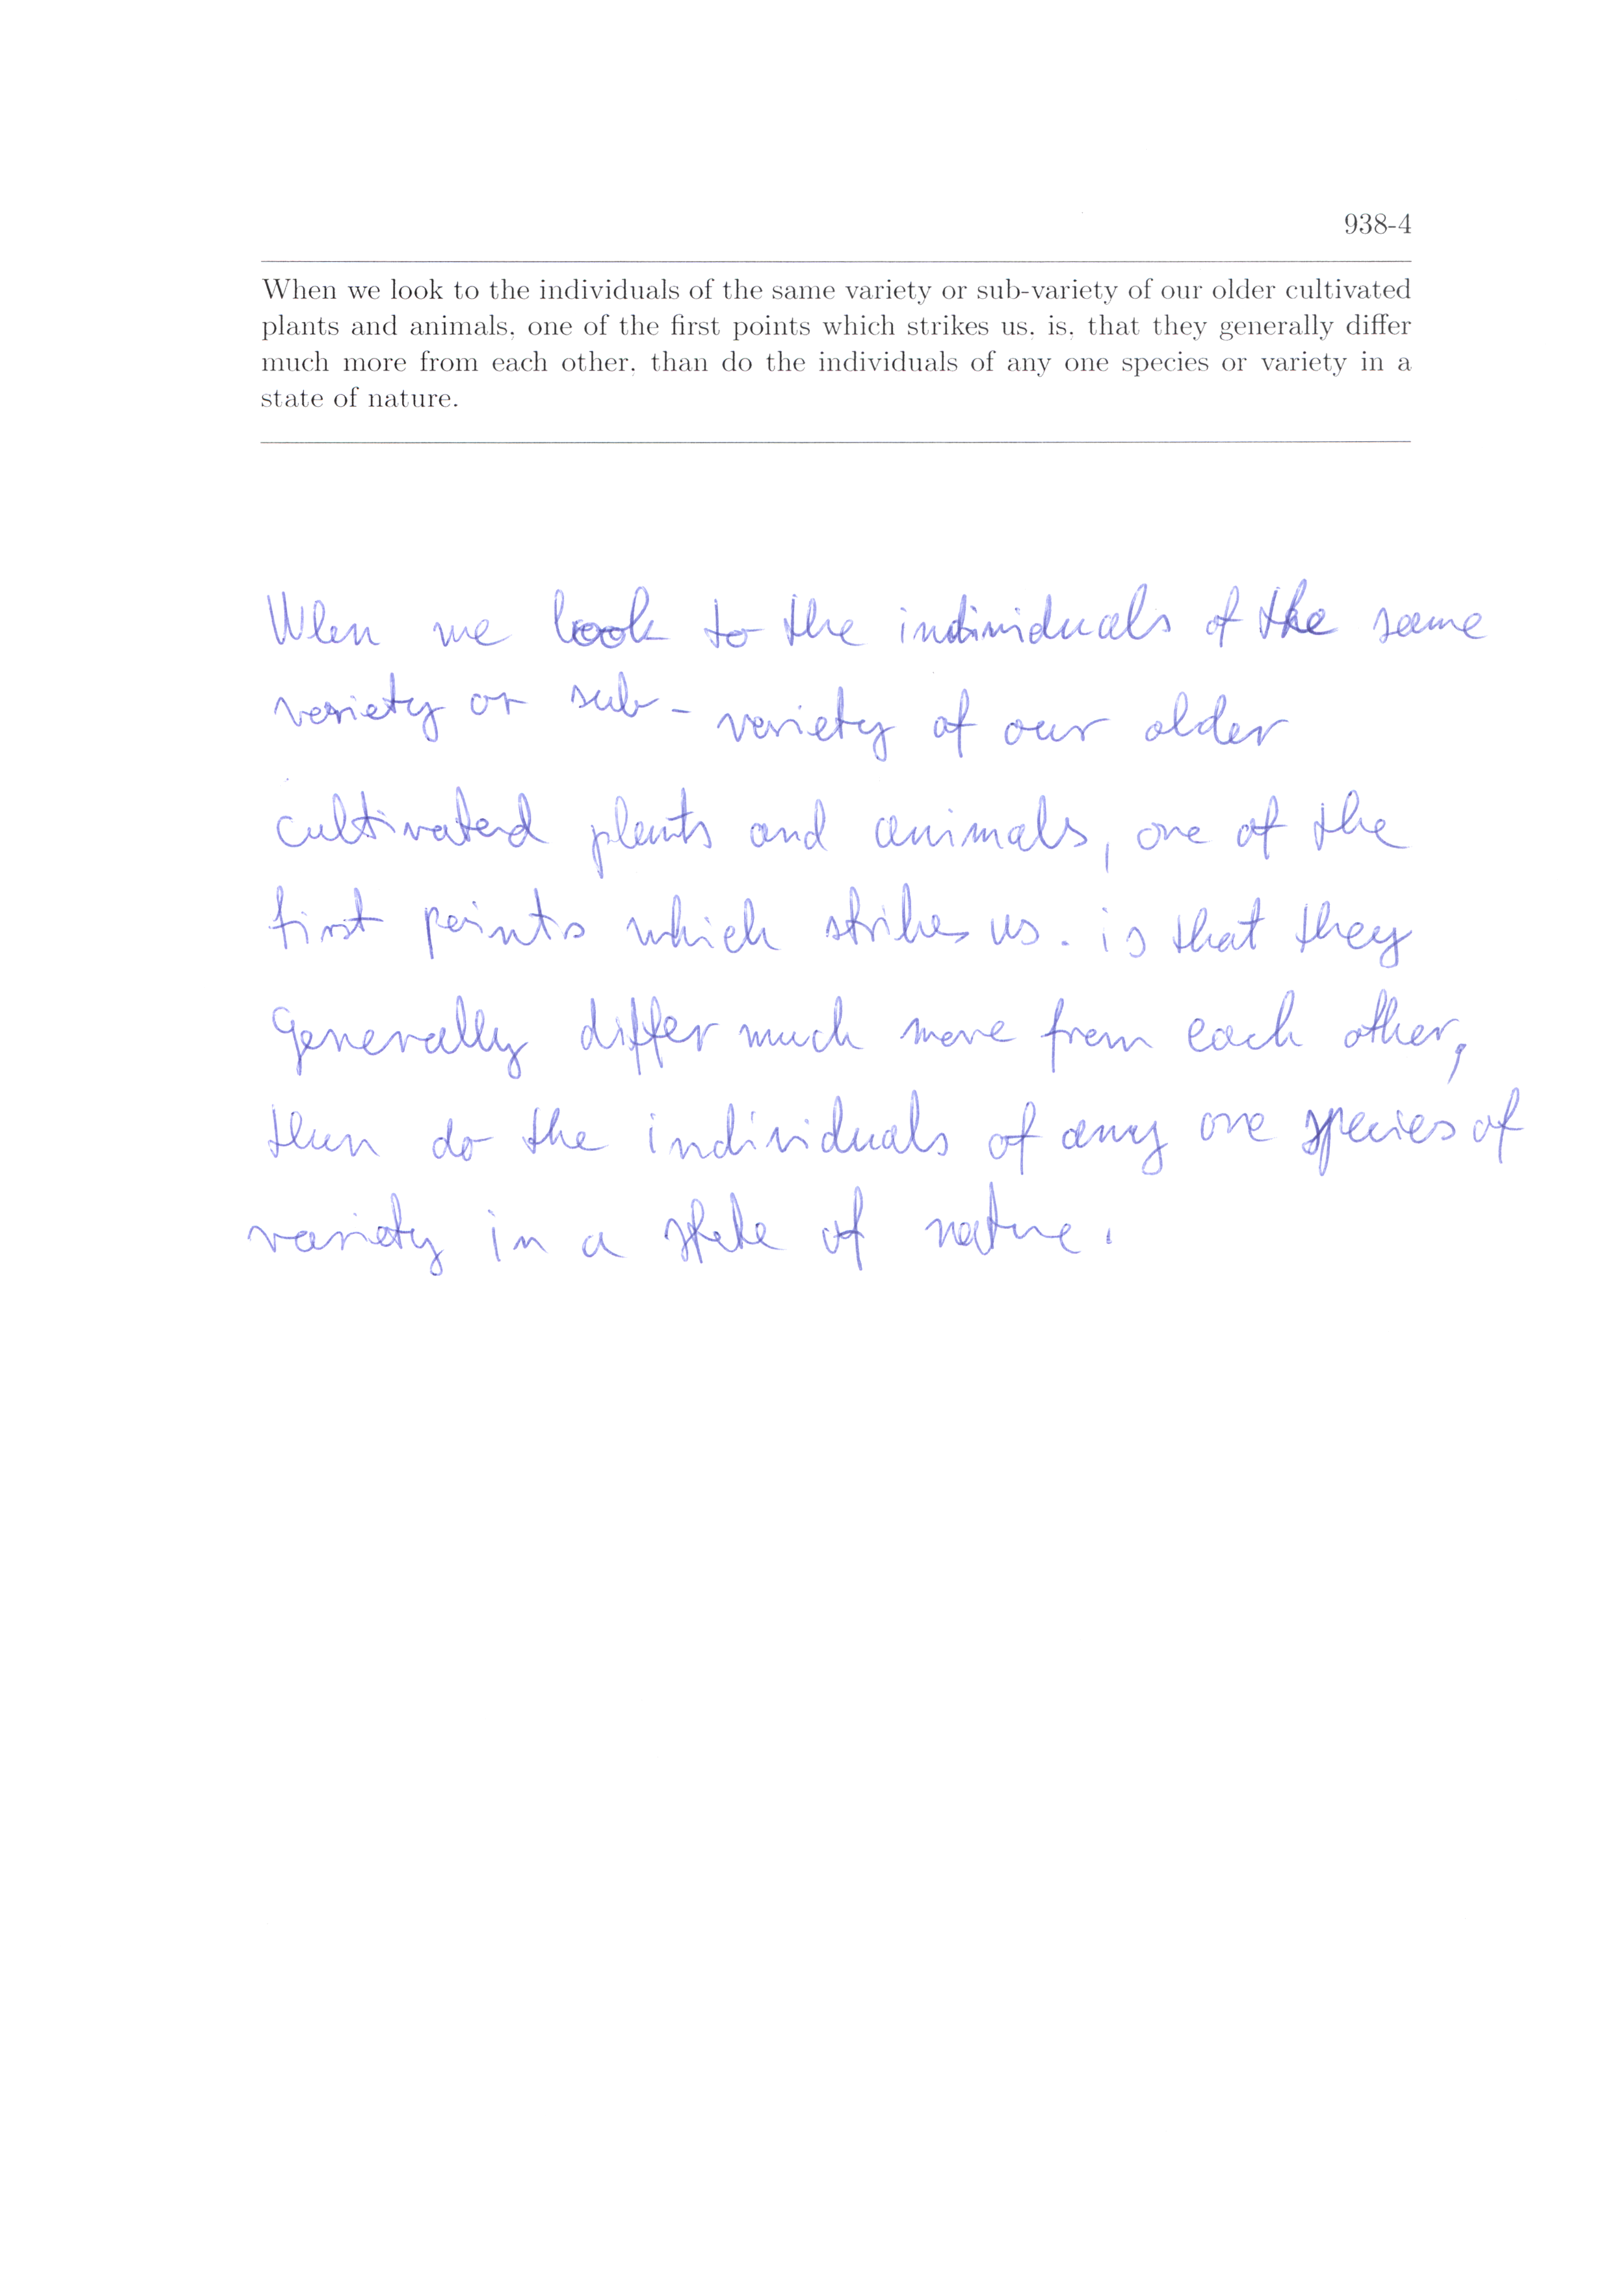 938-4
When we look to the individuals of the same variety or sub-variety of our older cultivated
plants and animals, one of the first points which strikes us, is, that they generally differ
much more from each other, than do the individuals of any one species or variety in a
state of nature.
When we look to the individuals of the same
variety or sub-variety of our older
cultivated plants and animals, one of the
first points which strikes us. is that they
generally differ much more from each other,
then do the individuals of any one species of
variety in a state of nature.